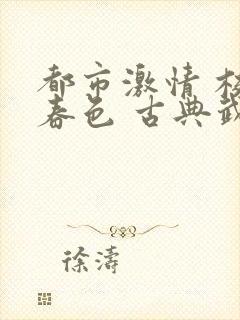 都市激情 校
春色 古典武
徐濤